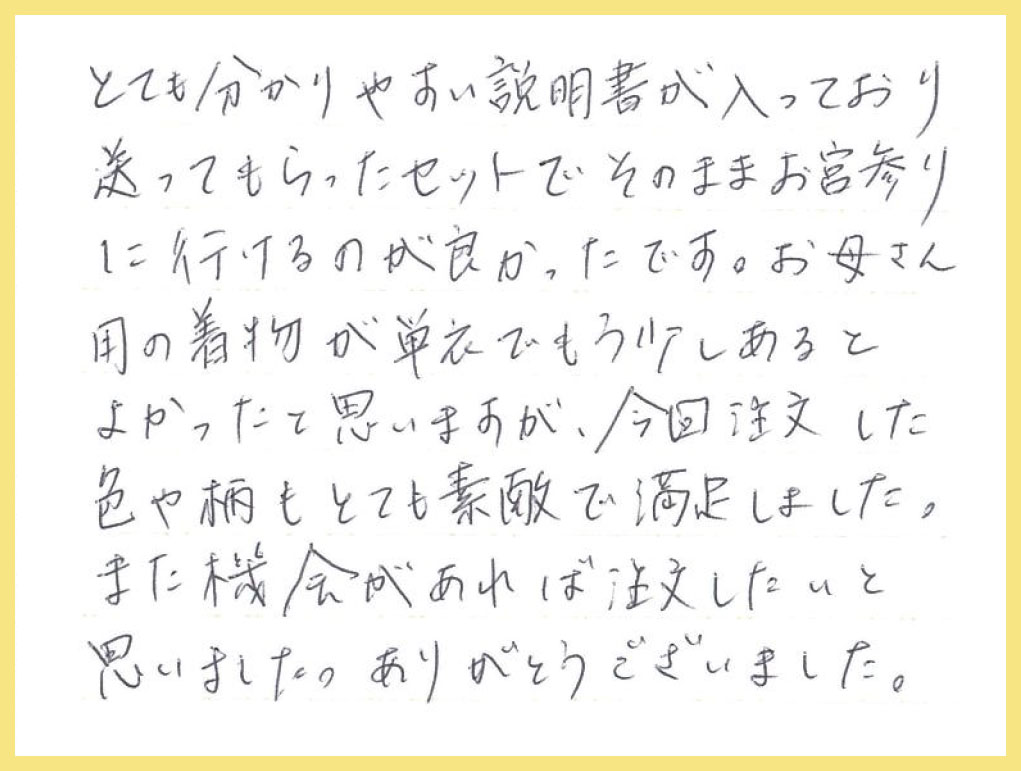 とても分かりやすい説明書が入っており
送ってもらったセットでそのままお宮参り
に行けるのが良かったです。お母さん
用の着物が単衣でもう少しあると
よかったと思いますが、今回注文した
色や柄もとても素敵で満足しました。
また機会があれば注文したいと
思いました。ありがとうございました。